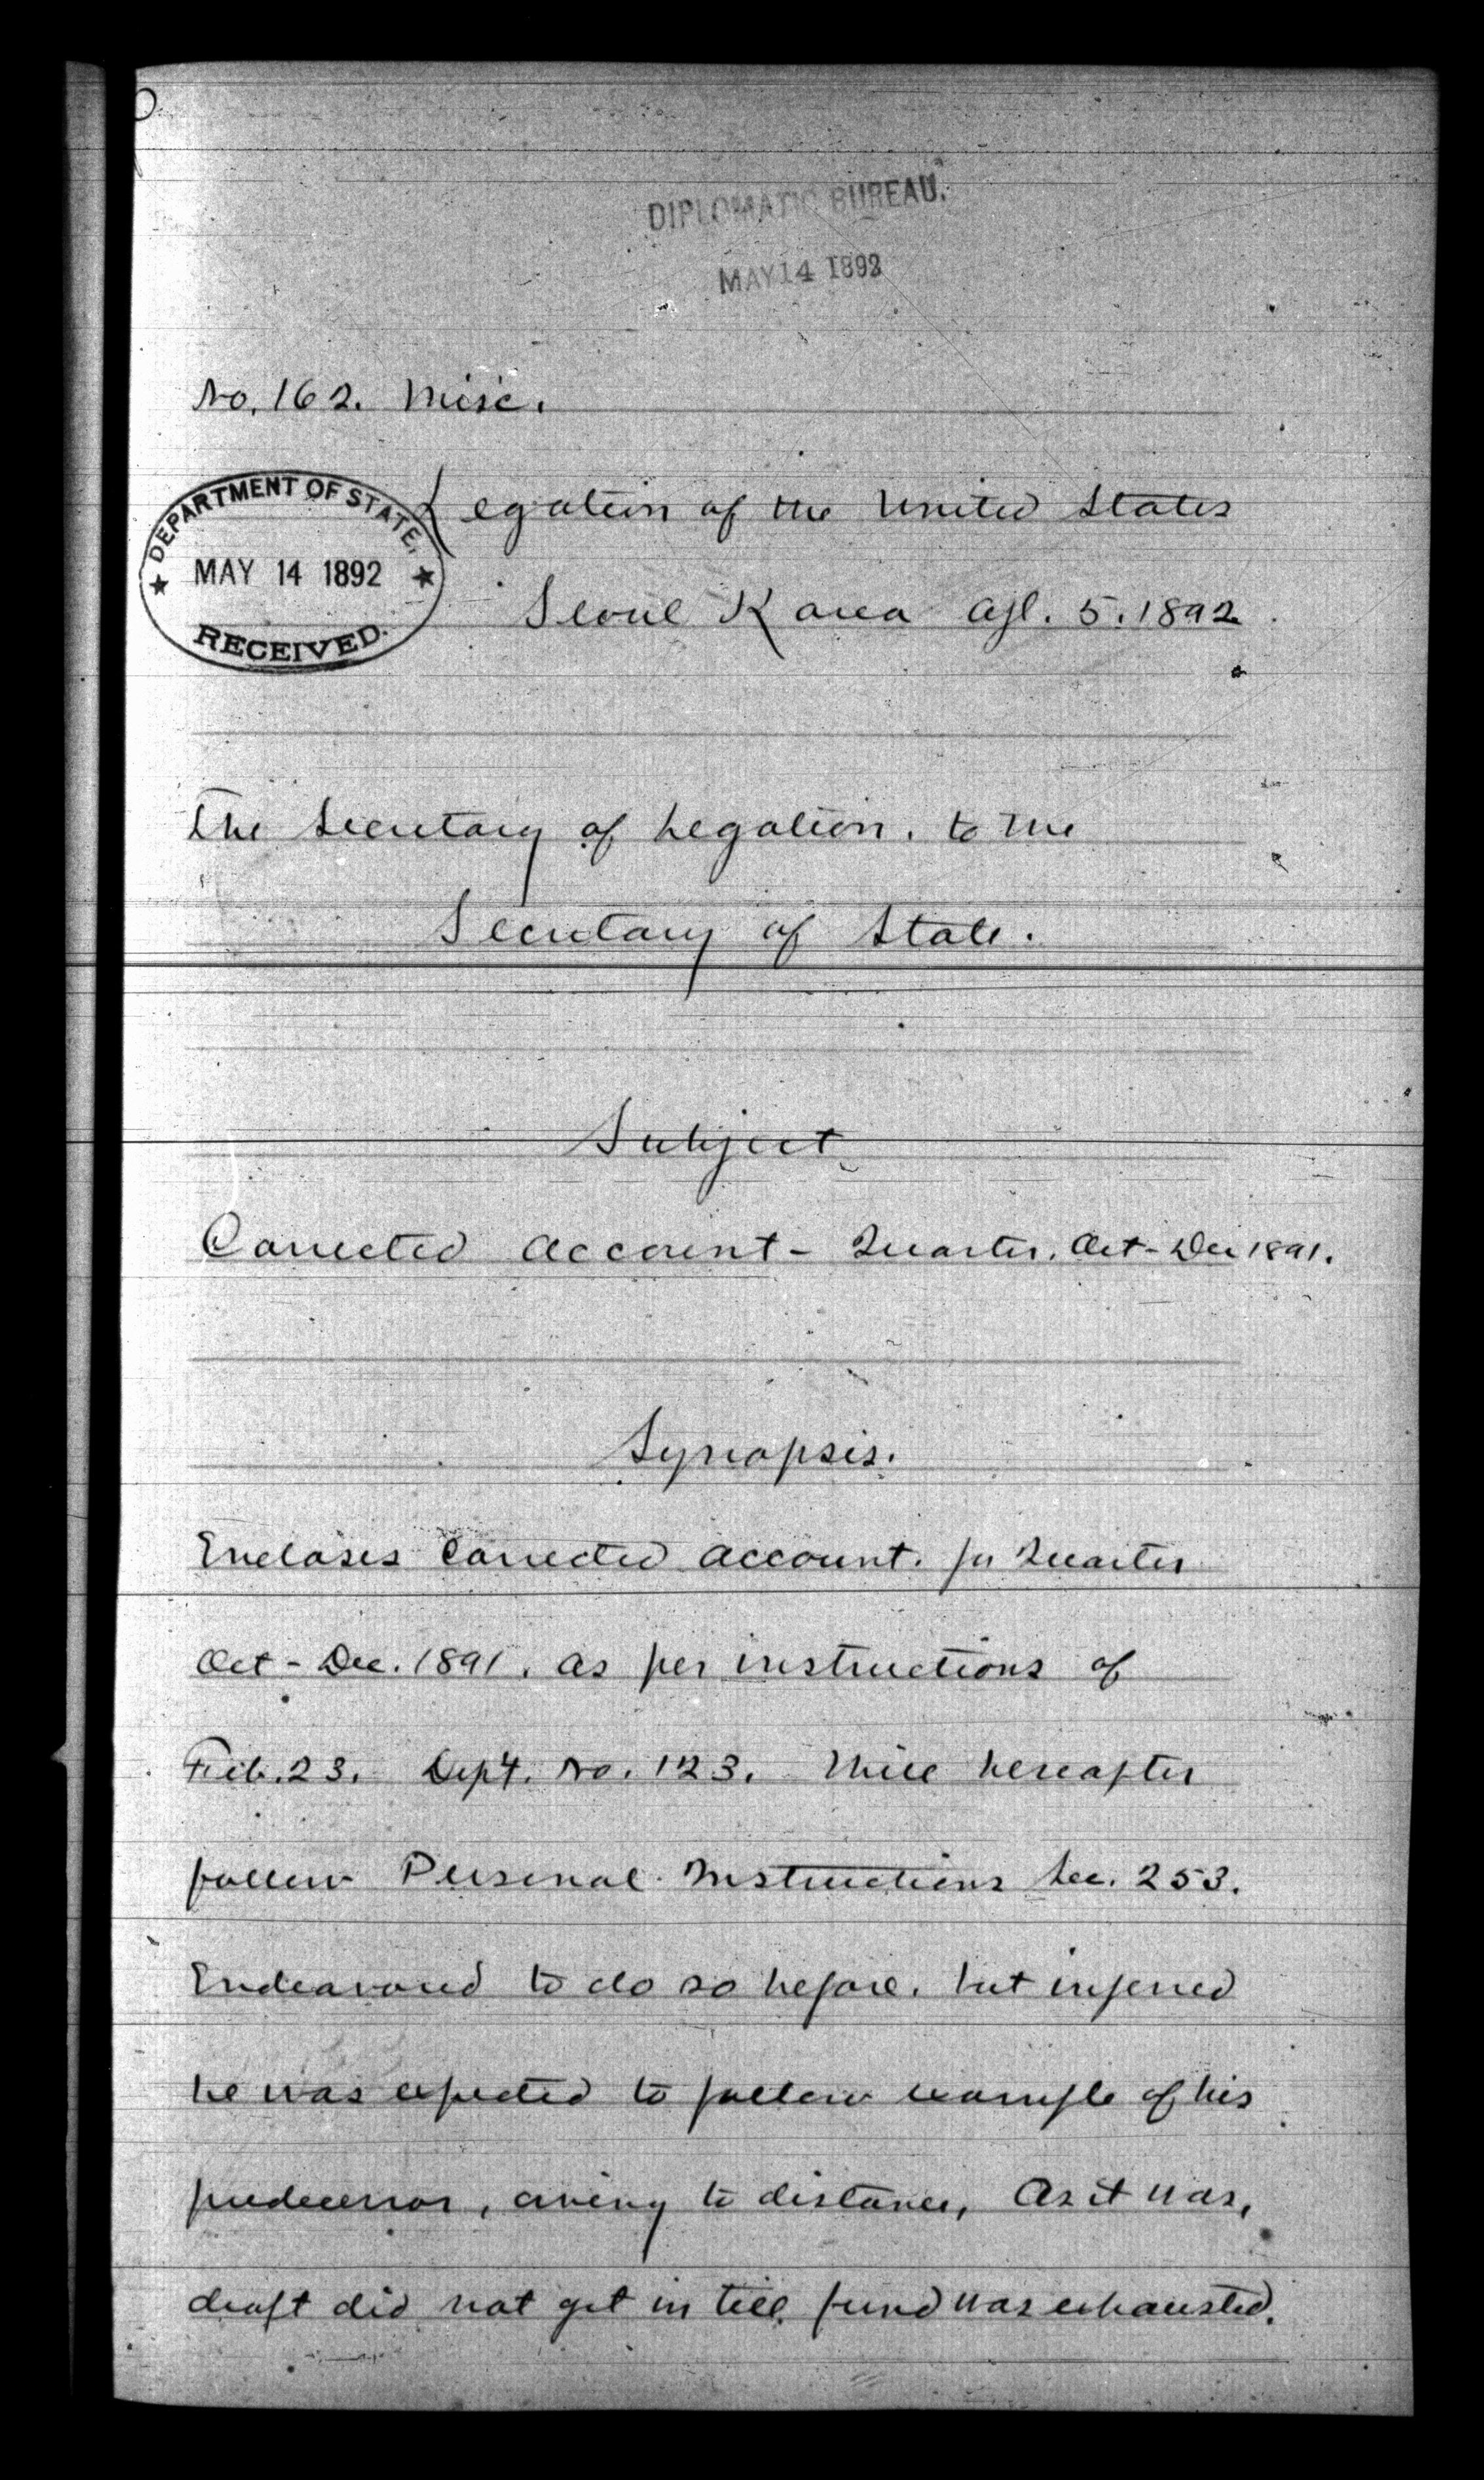 DIPLOMATIC BUREAU.
MAY 14 1892
No. 162. Misc.
DEPARTMENT OF STATE,
MAY 14 1892
RECEIVED.
Legation of the United States
Seoul Korea Apl. 5. 1892.
The Secretary of Legation. to the
Secretary of State.
Subject
Corrected Account - Quarter. Oct - Dec 1891.
Synopsis.
Encloses Corrected Account. for Quarter
Oct - Dec. 1891. as per instructions of
Feb. 23. Dept. No. 123. Will hereafter
follow Personal Instructions Sec. 253.
Endeavored to do so before. but inferred
he was expected to follow example of his
predecessor, owing to distance, As it was,
draft did not get in till fund was exhausted.